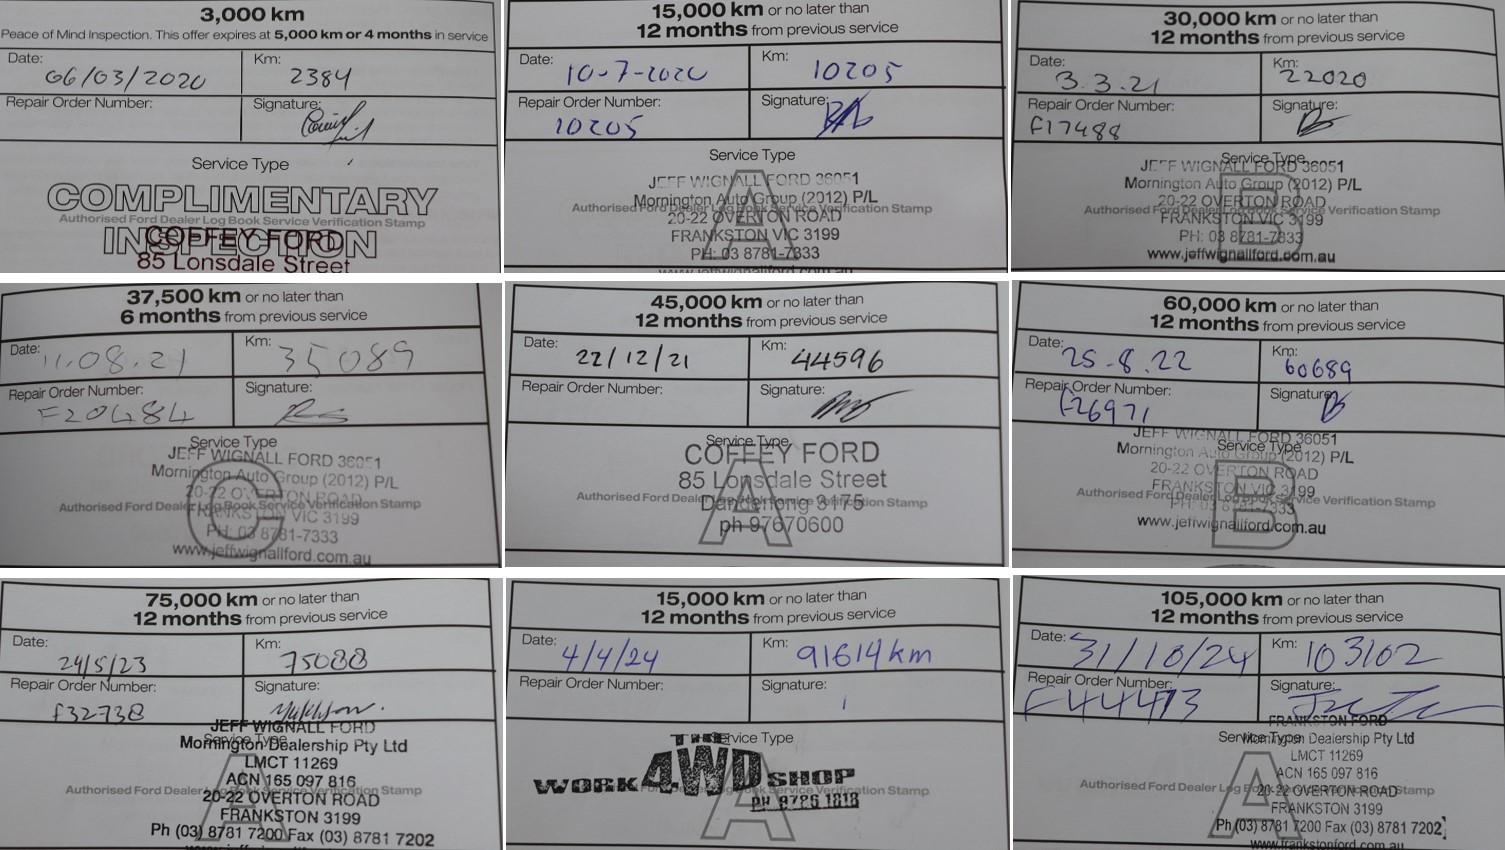 3,000 km
Peace of Mind Inspection. This offer expires at 5,000 km or 4 months in service
Date: 06/03/2020 Km: 2384
Repair Order Number: Signature:
Service Type
COMPLIMENTARY
Authorised Ford Dealer Log Book Service Verification Stamp
INSPECTION
COFFEY FORD
85 Lonsdale Street
15,000 km or no later than
12 months from previous service
Date: 10-7-2020 Km: 10205
Repair Order Number: 10205 Signature:
Service Type
A
JEFF WIGNALL FORD 36051
Mornington Auto Group (2012) P/L
Authorised Ford Dealer Log Book Service Verification Stamp
20-22 OVERTON ROAD
FRANKSTON VIC 3199
PH: 03 8781-7333
www.jeffwignallford.com.au
30,000 km or no later than
12 months from previous service
Date: 3.3.21 Km: 22020
Repair Order Number: F17488 Signature:
Service Type
B
JEFF WIGNALL FORD 36051
Mornington Auto Group (2012) P/L
20-22 OVERTON ROAD
Authorised Ford Dealer Log Book Service Verification Stamp
FRANKSTON VIC 3199
PH: 03 8781-7333
www.jeffwignallford.com.au
37,500 km or no later than
6 months from previous service
Date: 11.08.21 Km: 35089
Repair Order Number: F20484 Signature:
Service Type
C
JEFF WIGNALL FORD 36051
Mornington Auto Group (2012) P/L
20-22 OVERTON ROAD
Authorised Ford Dealer Log Book Service Verification Stamp
FRANKSTON VIC 3199
PH: 03 8781-7333
www.jeffwignallford.com.au
45,000 km or no later than
12 months from previous service
Date: 22/12/21 Km: 44596
Repair Order Number: Signature:
Service Type
A
COFFEY FORD
85 Lonsdale Street
Authorised Ford Dealer Log Book Service Verification Stamp
Dandenong 3175
ph 97670600
60,000 km or no later than
12 months from previous service
Date: 25.8.22 Km: 60689
Repair Order Number: F26971 Signature:
Service Type
B
JEFF WIGNALL FORD 36051
Mornington Auto Group (2012) P/L
20-22 OVERTON ROAD
FRANKSTON VIC 3199
Authorised Ford Dealer Log Book Service Verification Stamp
PH: 03 8781-7333
www.jeffwignallford.com.au
75,000 km or no later than
12 months from previous service
Date: 24/5/23 Km: 75088
Repair Order Number: F32738 Signature:
Service Type
A
JEFF WIGNALL FORD
Mornington Dealership Pty Ltd
LMCT 11269
ACN 165 097 816
Authorised Ford Dealer Log Book Service Verification Stamp
20-22 OVERTON ROAD
FRANKSTON 3199
Ph (03) 8781 7200 Fax (03) 8781 7202
15,000 km or no later than
12 months from previous service
Date: 4/4/24 Km: 91614km
Repair Order Number: Signature:
Service Type
A
THE
WORK 4WD SHOP
Authorised Ford Dealer Log Book Service Verification Stamp
PH 8786 1818
105,000 km or no later than
12 months from previous service
Date: 31/10/24 Km: 103102
Repair Order Number: F44473 Signature:
Service Type
A
FRANKSTON FORD
Mornington Dealership Pty Ltd
LMCT 11269
ACN 165 097 816
Authorised Ford Dealer Log Book Service Verification Stamp
20-22 OVERTON ROAD
FRANKSTON 3199
Ph (03) 8781 7200 Fax (03) 8781 7202
www.frankstonford.com.au